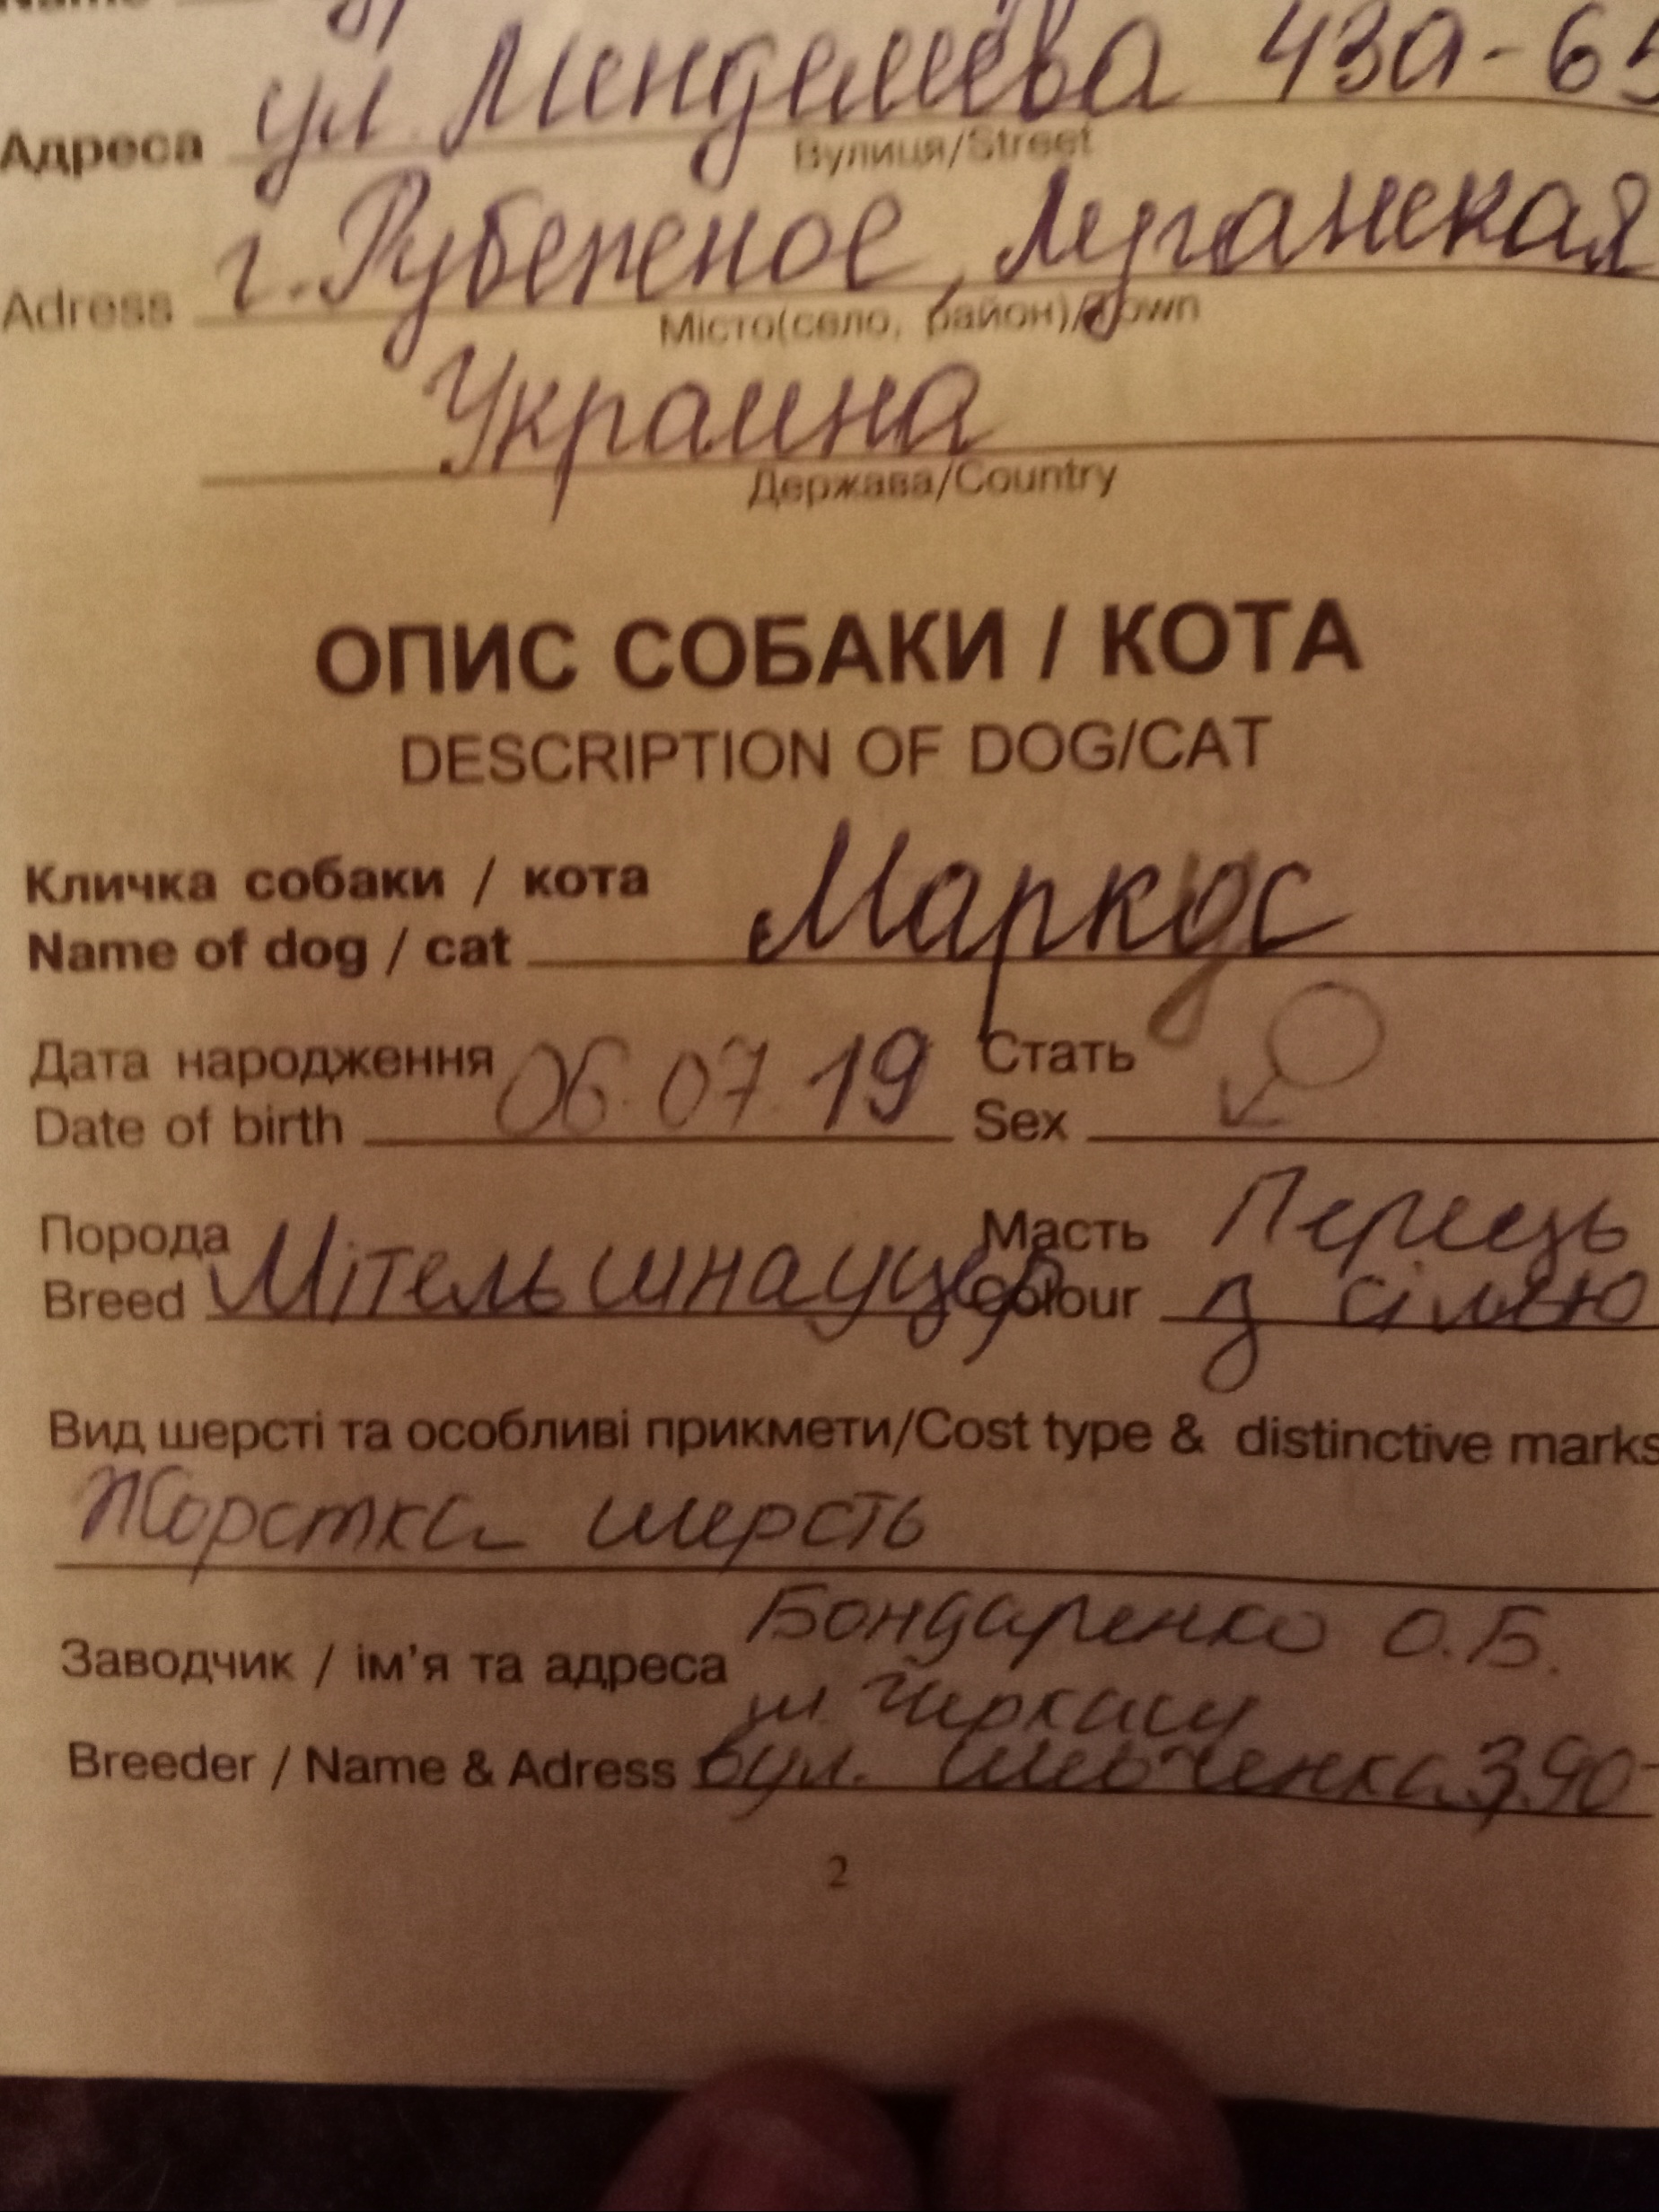 Name
Адреса ул. Менделеева 43а-65
Вулиця/Street
Adress г. Рубежное, Луганская
Місто(село, район)/Town
Украина
Держава/Country
ОПИС СОБАКИ / КОТА
DESCRIPTION OF DOG/CAT
Кличка собаки / кота
Name of dog / cat Маркус
Дата народження 06.07.19 Стать
Date of birth Sex
Порода Масть Перець
Breed Мітельшнауцер Colour з сіллю
Вид шерсті та особливі прикмети/Cost type & distinctive marks
Жорстка шерсть
Бондаренко О.Б.
Заводчик / ім'я та адреса
м. Черкаси
Breeder / Name & Adress бул. Шевченка
2